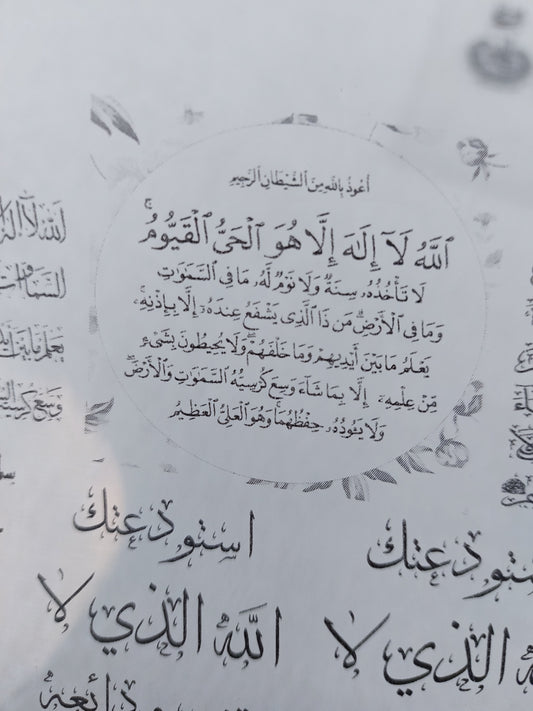 أعوذ بالله من الشيطان الرجيم
ٱللَّهُ لَآ إِلَٰهَ إِلَّا هُوَ ٱلْحَىُّ ٱلْقَيُّومُ ۚ
لَا تَأْخُذُهُۥ سِنَةٌ وَلَا نَوْمٌ لَّهُۥ مَا فِى ٱلسَّمَٰوَٰتِ
وَمَا فِى ٱلْأَرْضِ ۗ مَن ذَا ٱلَّذِى يَشْفَعُ عِندَهُۥٓ إِلَّا بِإِذْنِهِۦ ۚ
يَعْلَمُ مَا بَيْنَ أَيْدِيهِمْ وَمَا خَلْفَهُمْ ۖ وَلَا يُحِيطُونَ بِشَىْءٍ
مِّنْ عِلْمِهِۦٓ إِلَّا بِمَا شَآءَ ۚ وَسِعَ كُرْسِيُّهُ ٱلسَّمَٰوَٰتِ وَٱلْأَرْضَ ۖ
وَلَا يَـُٔودُهُۥ حِفْظُهُمَا ۚ وَهُوَ ٱلْعَلِىُّ ٱلْعَظِيمُ
استودعتك
الله الذي لا
ستودعتك
الذي لا